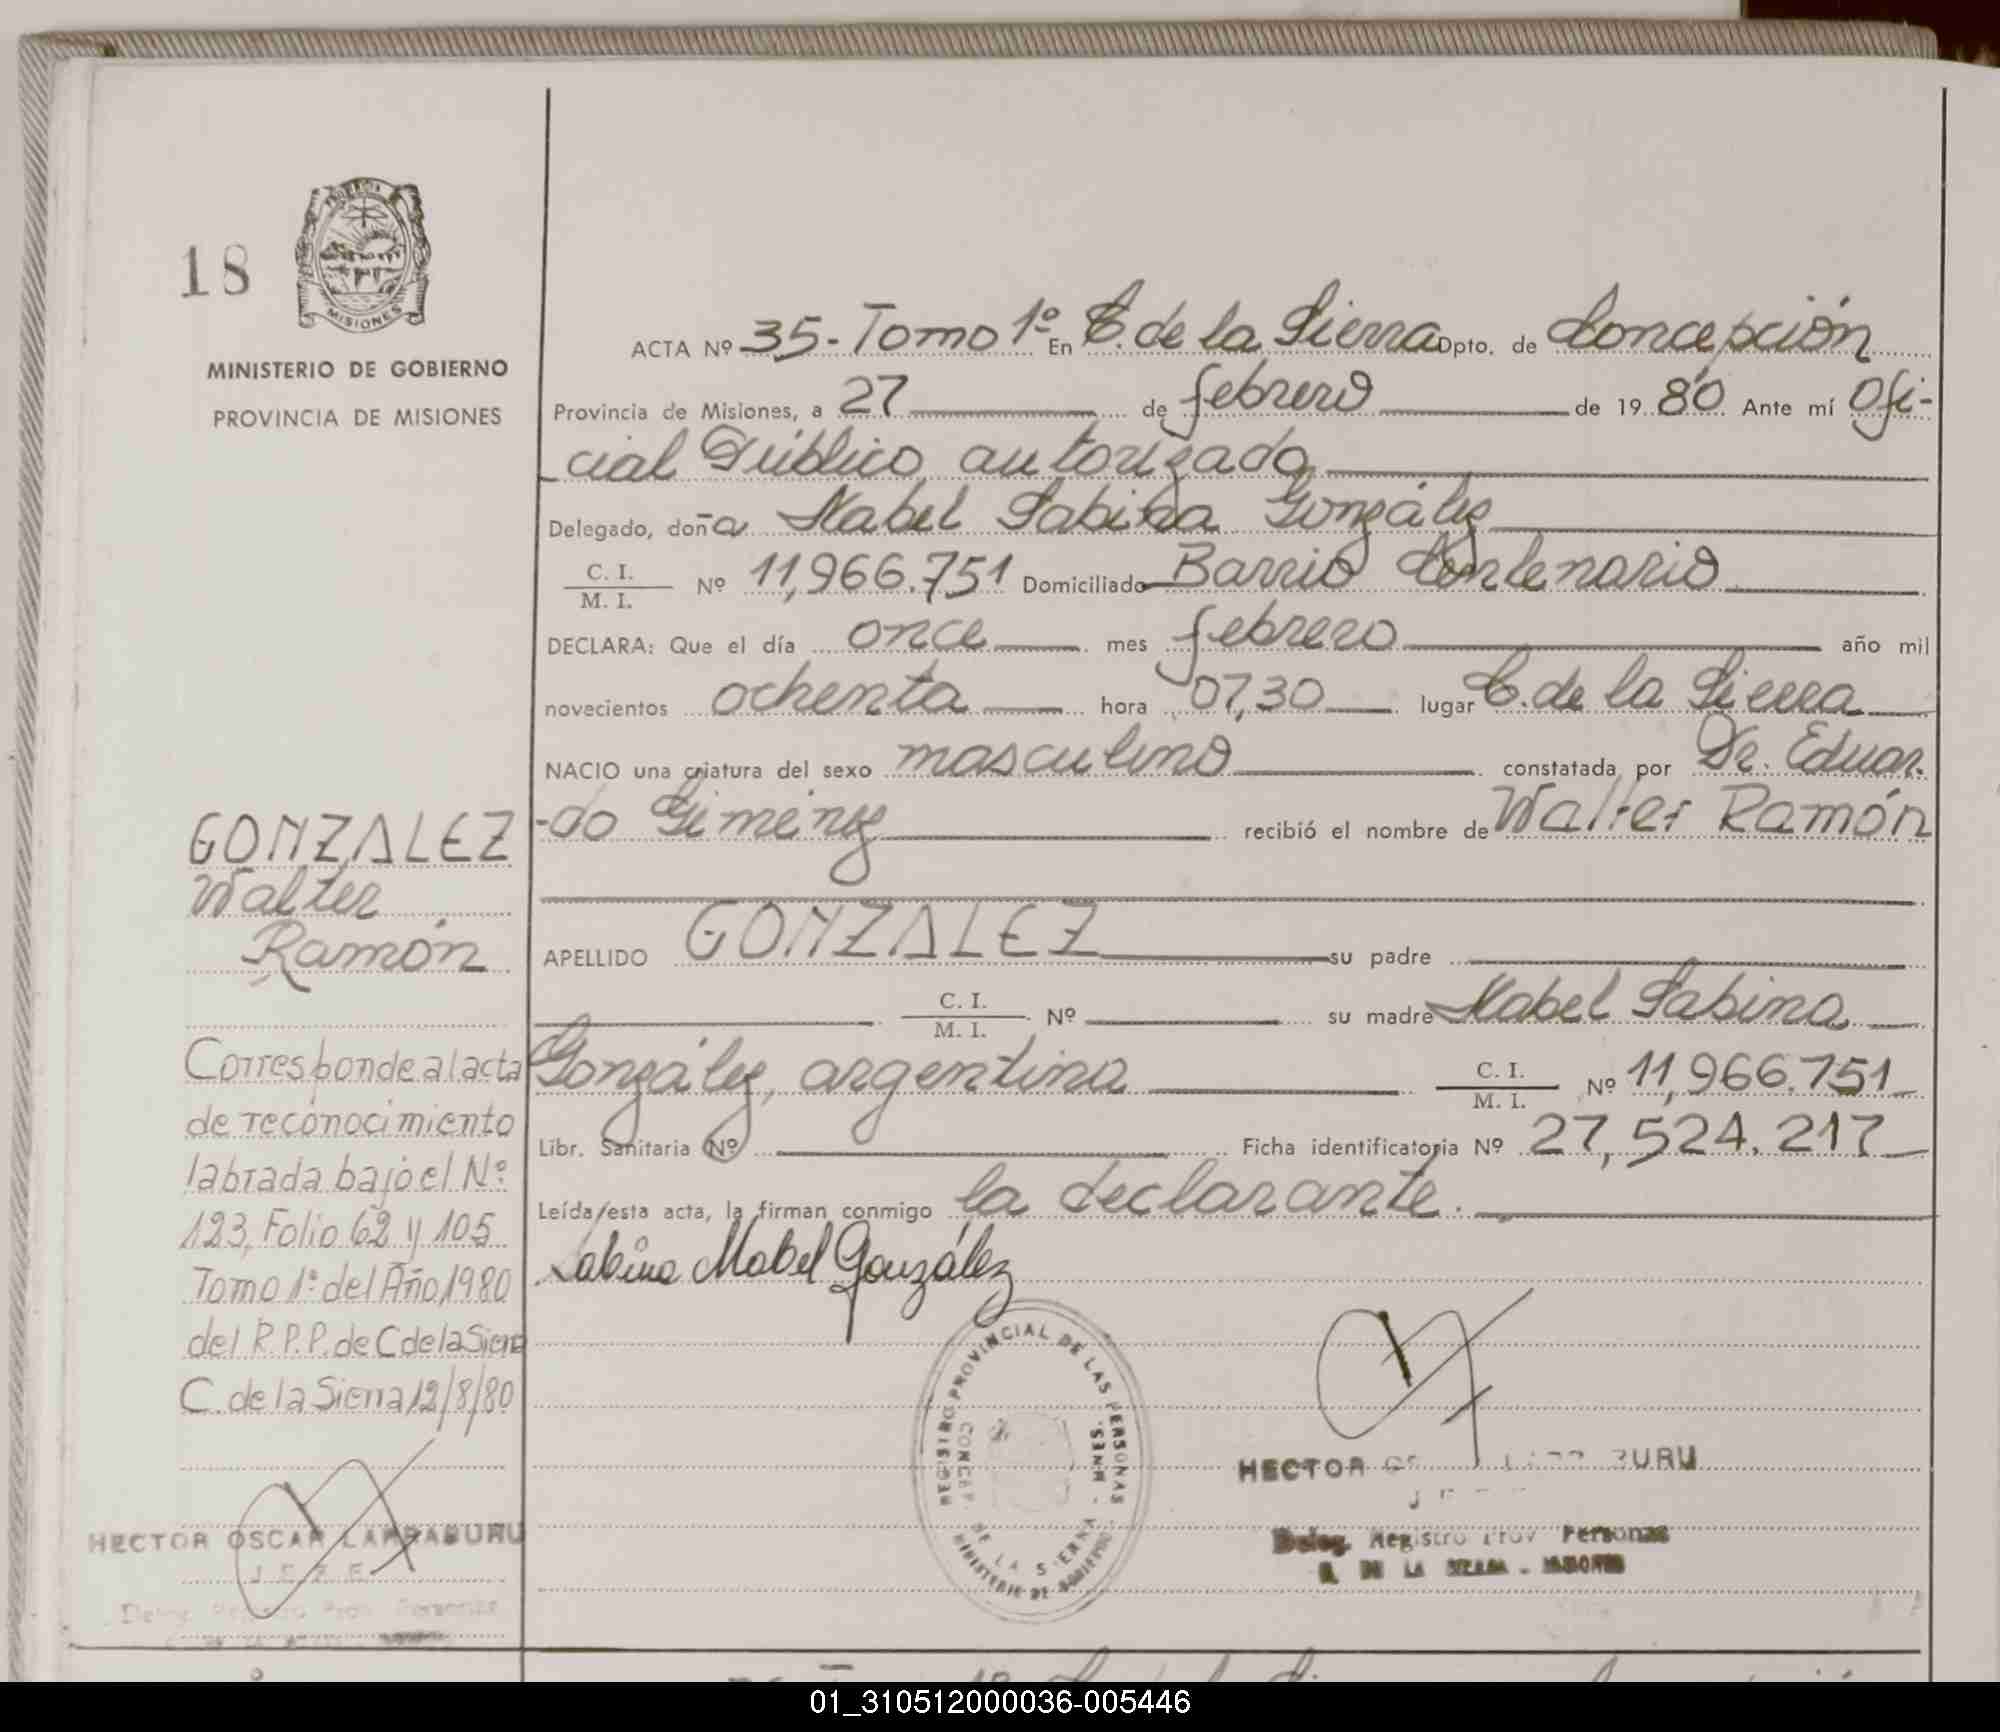 18
PROVINCIA DE
MISIONES
MINISTERIO DE GOBIERNO
PROVINCIA DE MISIONES
ACTA Nº 35- Tomo 1º En C. de la Sierra Dpto. de Concepción
Provincia de Misiones, a 27 de febrero de 1980 Ante mí Ofi-
cial Público autorizado
Delegado, doña Mabel Sabina González
C. I.
M. I. Nº 11,966.751 Domiciliado Barrio Centenario
DECLARA: Que el día once mes febrero año mil
novecientos ochenta hora 07,30 lugar C. de la Sierra
NACIO una criatura del sexo masculino constatada por Dr. Eduar
-do Giménez recibió el nombre de Walter Ramón
APELLIDO GONZALEZ su padre
C. I.
M. I. Nº su madre Mabel Sabina
González, argentina C. I.
M. I. Nº 11,966.751
Libr. Sanitaria Nº Ficha identificatoria Nº 27,524.217
Leída esta acta, la firman conmigo la declarante.
Sabina Mabel González
GONZALEZ
Walter
Ramón
Corresponde al acta
de reconocimiento
labrada bajo el Nº
123, Folio 62 y 105
Tomo 1º del Año 1980
del R.P.P. de C de la Sierra
C. de la Sierra 12/8/80
HECTOR OSCAR LARRABURU
JEFE
REGISTRO PROVINCIAL DE LAS PERSONAS
CONCEP. DE LA SIERRA - MNES.
MINISTERIO DE GOBIERNO
HECTOR BURU
Deleg. Registro Prov Personas
C. DE LA SIERRA - MISIONES
01_310512000036-005446